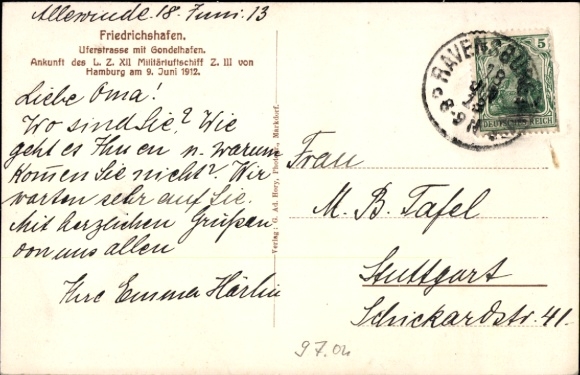 Allewinde 18. Juni. 13
Friedrichshafen.
Uferstrasse mit Gondelhafen.
Ankunft des L. Z. XII Militärluftschiff Z. III von
Hamburg am 9. Juni 1912.
Liebe Oma!
Wo sind Sie? Wie
geht es Ihnen u. warum
komen Sie nicht? Wir
warten sehr auf Sie.
Mit herzlichen Grüßen
von uns allen
Ihre Emma Härlin
Verlag: G. Ad. Hory, Markdorf.
RAVENSBURG
18
8-9 N
5
DEUTSCHES REICH
Frau
M. B. Tafel
Stuttgart
Schickardstr. 41.
97.04